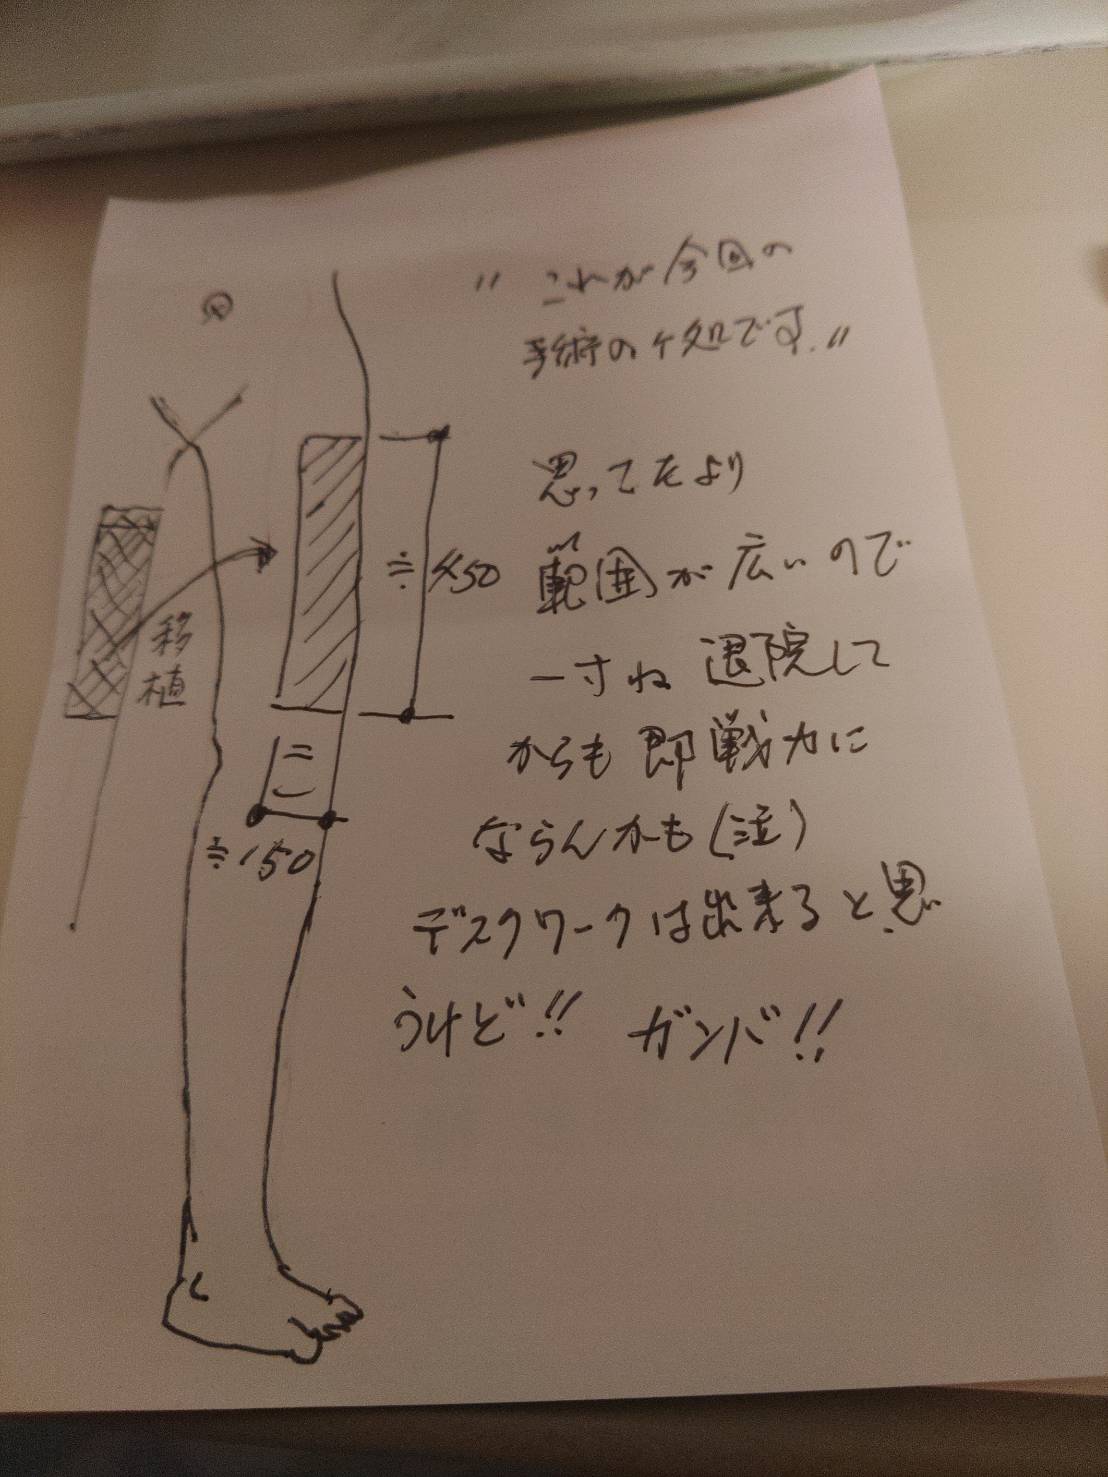 "これが今回の
手術のケ処です."
思ってたより
範囲が広いので
一寸ね 退院して
からも即戦力に
ならんかも(泣)
デスクワークは出来ると思
うけど!! ガンバ!!
移
植
≒450
≒150